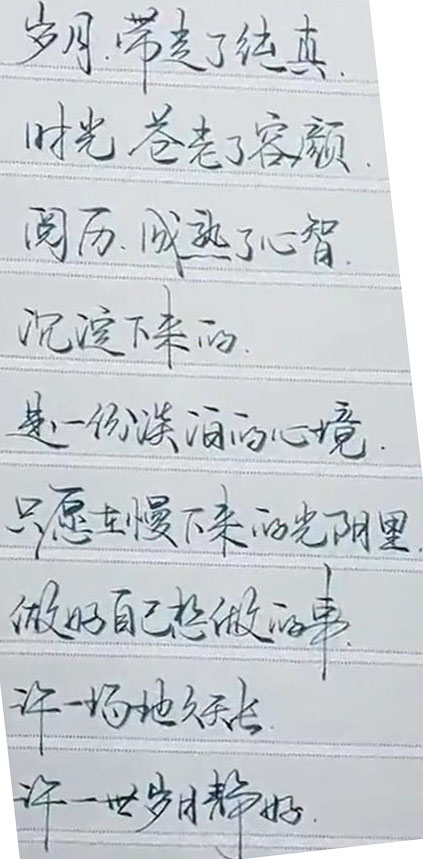 岁月.带走了纯真.
时光.苍老了容颜.
阅历.成熟了心智.
沉淀下来的.
是一份淡泊的心境.
只愿在慢下来的光阴里.
做好自己想做的事.
许一场地久天长.
许一世岁月静好.